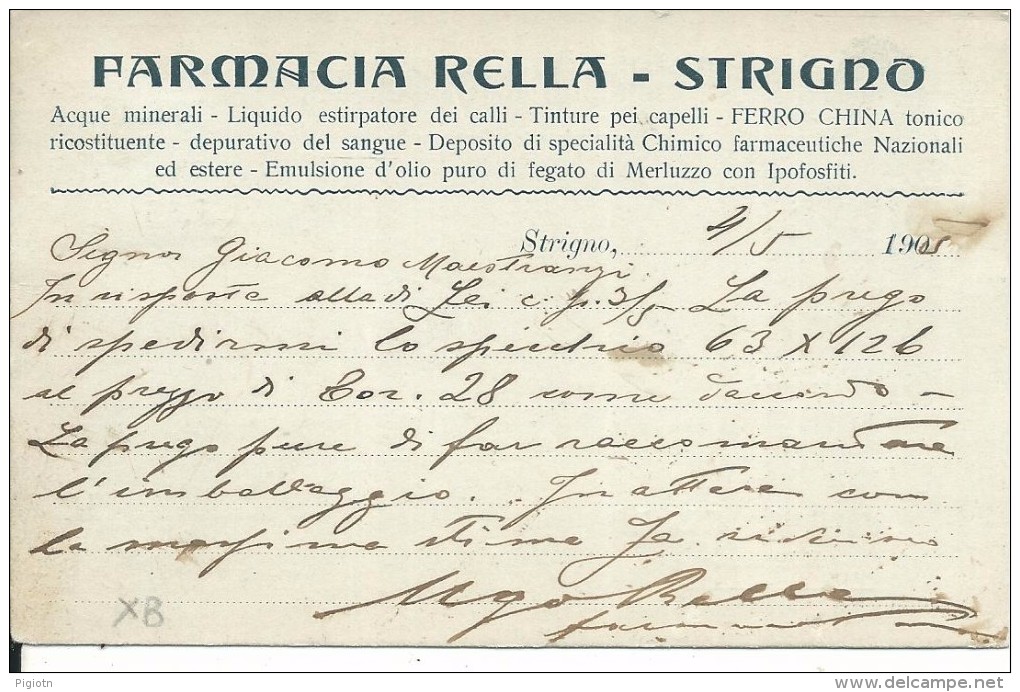 FARMACIA RELLA - STRIGNO
Acque minerali - Liquido estirpatore dei calli - Tinture pei capelli - FERRO CHINA tonico
ricostituente - depurativo del sangue - Deposito di specialità Chimico farmaceutiche Nazionali
ed estere - Emulsione d'olio puro di fegato di Merluzzo con Ipofosfiti.
Strigno, 4/5 190
Signor Giacomo Maestranzi
In risposta alla di Lei c. 3/5 La prego
di spedirmi lo specchio 63 x 126
al prezzo di Cor. 28 come d'accordo -
La prego pure di far raccomandare
l'imballaggio. In attesa con
la massima stima La riverisco
Ugo Rella
XB
Pigiotn
delcampe.net